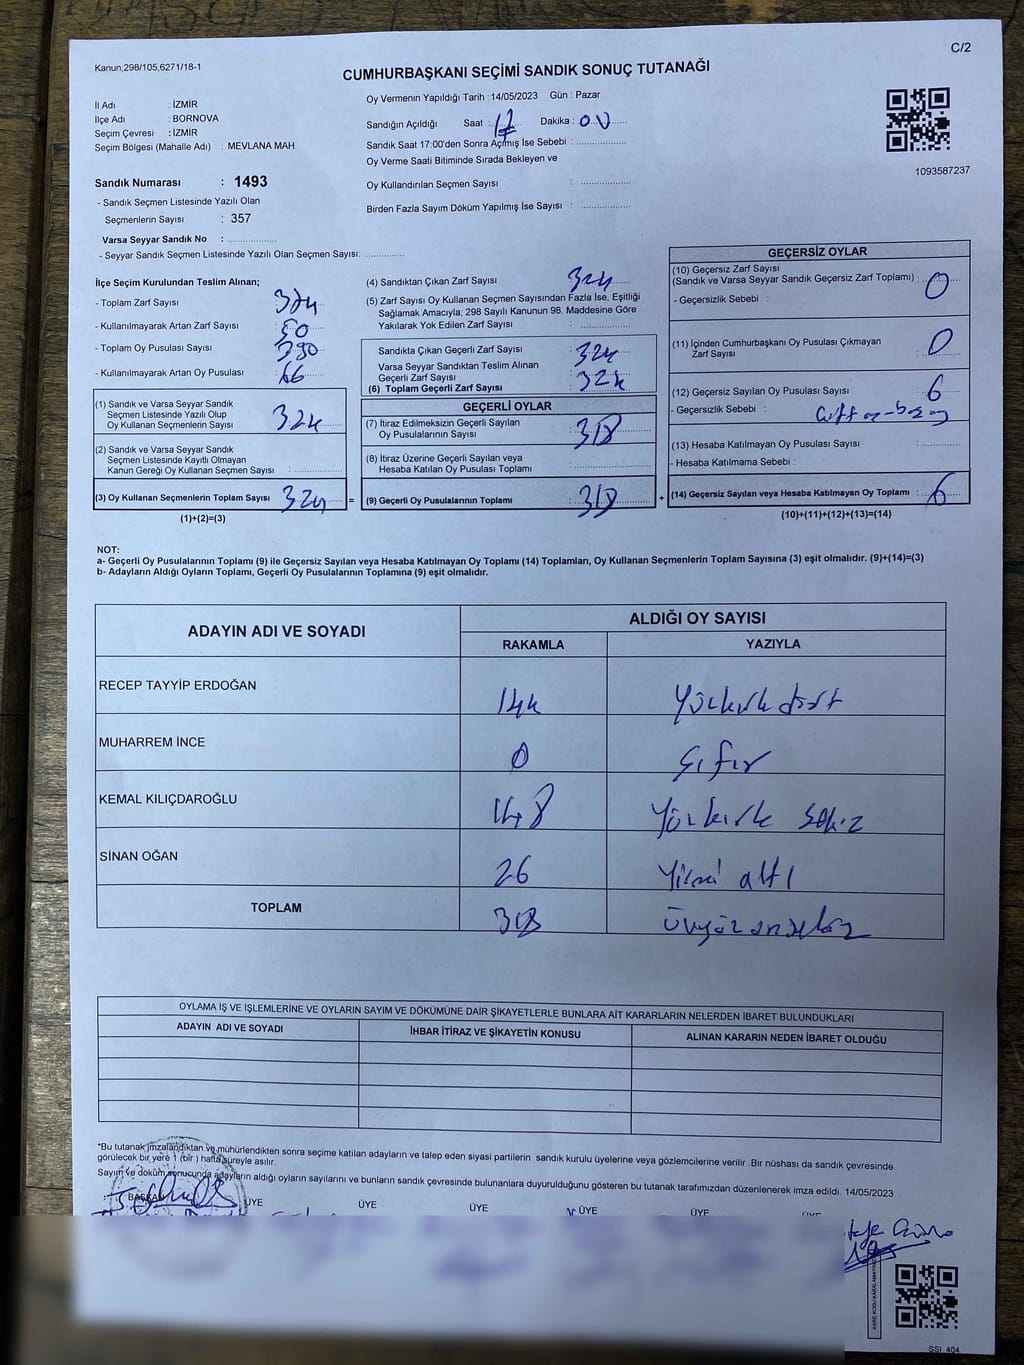 C/2
Kanun,298/105,6271/18-1
CUMHURBAŞKANI SEÇİMİ SANDIK SONUÇ TUTANAĞI
İl Adı : İZMİR
İlçe Adı : BORNOVA
Seçim Çevresi : İZMİR
Seçim Bölgesi (Mahalle Adı) : MEVLANA MAH.
Sandık Numarası : 1493
- Sandık Seçmen Listesinde Yazılı Olan
Seçmenlerin Sayısı : 357
Varsa Seyyar Sandık No :
- Seyyar Sandık Seçmen Listesinde Yazılı Olan Seçmen Sayısı:
Oy Vermenin Yapıldığı Tarih :14/05/2023 Gün : Pazar
Sandığın Açıldığı Saat : 17 Dakika :
Sandık Saat 17:00'den Sonra Açmış İse Sebebi :
Oy Verme Saati Bitiminde Sırada Bekleyen ve
Oy Kullandırılan Seçmen Sayısı :
Birden Fazla Sayım Döküm Yapılmış İse Sayısı :
1093587237
İlçe Seçim Kurulundan Teslim Alınan;
- Toplam Zarf Sayısı :
- Kullanılmayarak Artan Zarf Sayısı : 50
- Toplam Oy Pusulası Sayısı : 390
- Kullanılmayarak Artan Oy Pusulası : 66
(1) Sandık ve Varsa Seyyar Sandık
Seçmen Listesinde Yazılı Olup
Oy Kullanan Seçmenlerin Sayısı : 324
(2) Sandık ve Varsa Seyyar Sandık
Seçmen Listesinde Kayıtlı Olmayan
Kanun Gereği Oy Kullanan Seçmen Sayısı :
(3) Oy Kullanan Seçmenlerin Toplam Sayısı : 324 =
(1)+(2)=(3)
(4) Sandıktan Çıkan Zarf Sayısı : 324
(5) Zarf Sayısı Oy Kullanan Seçmen Sayısından Fazla İse, Eşitliği
Sağlamak Amacıyla; 298 Sayılı Kanunun 98. Maddesine Göre
Yakılarak Yok Edilen Zarf Sayısı :
Sandıkta Çıkan Geçerli Zarf Sayısı : 324
Varsa Seyyar Sandıktan Teslim Alınan
Geçerli Zarf Sayısı :
(6) Toplam Geçerli Zarf Sayısı : 324
GEÇERLİ OYLAR
(7) İtiraz Edilmeksizin Geçerli Sayılan
Oy Pusulalarının Sayısı : 318
(8) İtiraz Üzerine Geçerli Sayılan veya
Hesaba Katılan Oy Pusulası Toplamı :
(9) Geçerli Oy Pusulalarının Toplamı : 318 +
GEÇERSİZ OYLAR
(10) Geçersiz Zarf Sayısı
(Sandık ve Varsa Seyyar Sandık Geçersiz Zarf Toplamı) : 0
- Geçersizlik Sebebi :
(11) İçinden Cumhurbaşkanı Oy Pusulası Çıkmayan
Zarf Sayısı : 0
(12) Geçersiz Sayılan Oy Pusulası Sayısı : 6
- Geçersizlik Sebebi :
(13) Hesaba Katılmayan Oy Pusulası Sayısı :
- Hesaba Katılmama Sebebi :
(14) Geçersiz Sayılan veya Hesaba Katılmayan Oy Toplamı : 6
(10)+(11)+(12)+(13)=(14)
NOT:
a- Geçerli Oy Pusulalarının Toplamı (9) ile Geçersiz Sayılan veya Hesaba Katılmayan Oy Toplamı (14) Toplamları, Oy Kullanan Seçmenlerin Toplam Sayısına (3) eşit olmalıdır. (9)+(14)=(3)
b- Adayların Aldığı Oyların Toplamı, Geçerli Oy Pusulalarının Toplamına (9) eşit olmalıdır.
ADAYIN ADI VE SOYADI ALDIĞI OY SAYISI
RAKAMLA YAZIYLA
RECEP TAYYİP ERDOĞAN 144 Yüzkırkdört
MUHARREM İNCE 0 Sıfır
KEMAL KILIÇDAROĞLU 148 Yüzkırk sekiz
SİNAN OĞAN 26 Yirmi altı
TOPLAM 318 üçyüz onsekiz
OYLAMA İŞ VE İŞLEMLERİNE VE OYLARIN SAYIM VE DÖKÜMÜNE DAİR ŞİKAYETLERLE BUNLARA AİT KARARLARIN NELERDEN İBARET BULUNDUKLARI
ADAYIN ADI VE SOYADI İHBAR İTİRAZ VE ŞİKAYETİN KONUSU ALINAN KARARIN NEDEN İBARET OLDUĞU
*Bu tutanak imzalandıktan ve mühürlendikten sonra seçime katılan adayların ve talep eden siyasi partilerin sandık kurulu üyelerine veya gözlemcilerine verilir .Bir nüshası da sandık çevresinde
görülecek bir yere 1 (bir ) hafta süreyle asılır.
Sayım ve döküm sonucunda adayların aldığı oyların sayılarını ve bunların sandık çevresinde bulunanlara duyurulduğunu gösteren bu tutanak tarafımızdan düzenlenerek imza edildi. 14/05/2023
BAŞKAN ÜYE ÜYE ÜYE ÜYE ÜYE
SSI 404